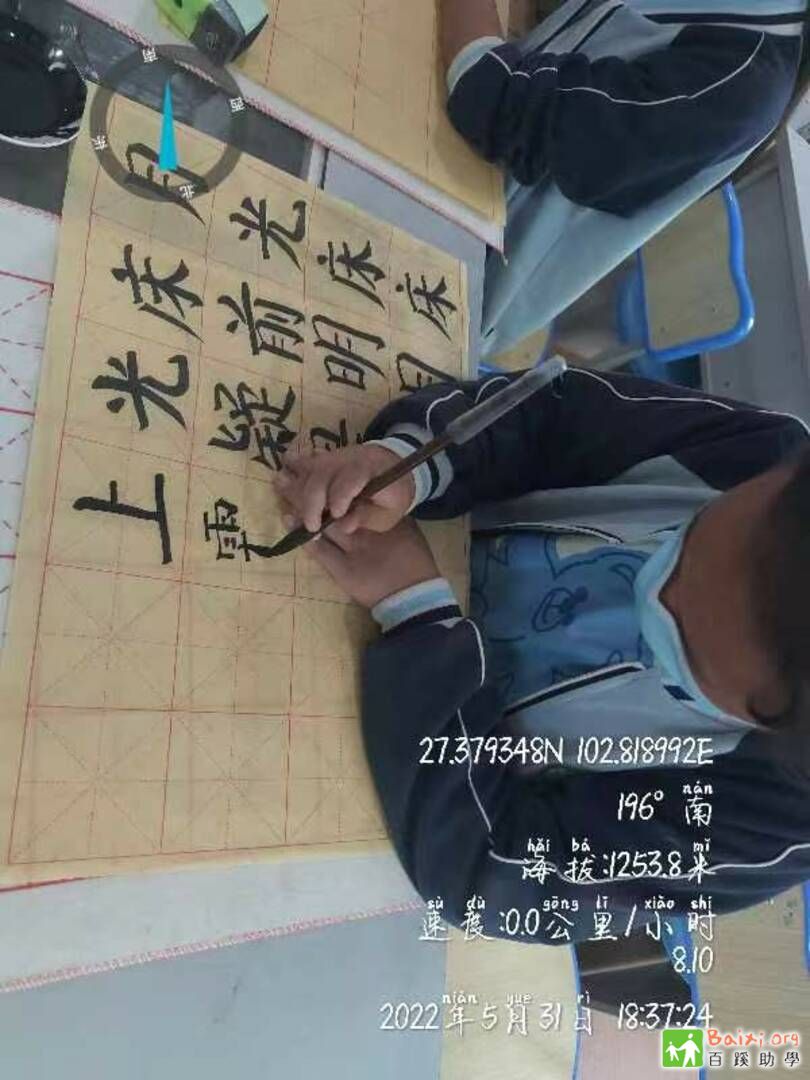 床月
床明
光前疑
月床光上
南
西
东
北
27.379348N 102.818992E
nán
196° 南
hǎi bá mǐ
海拔:1253.8米
sù dù gōng lǐ xiǎo shí
速度:0.0公里/小时
8.10
nián yuè rì
2022年5月31日 18:37:24
Baixi.org
百蹊助學